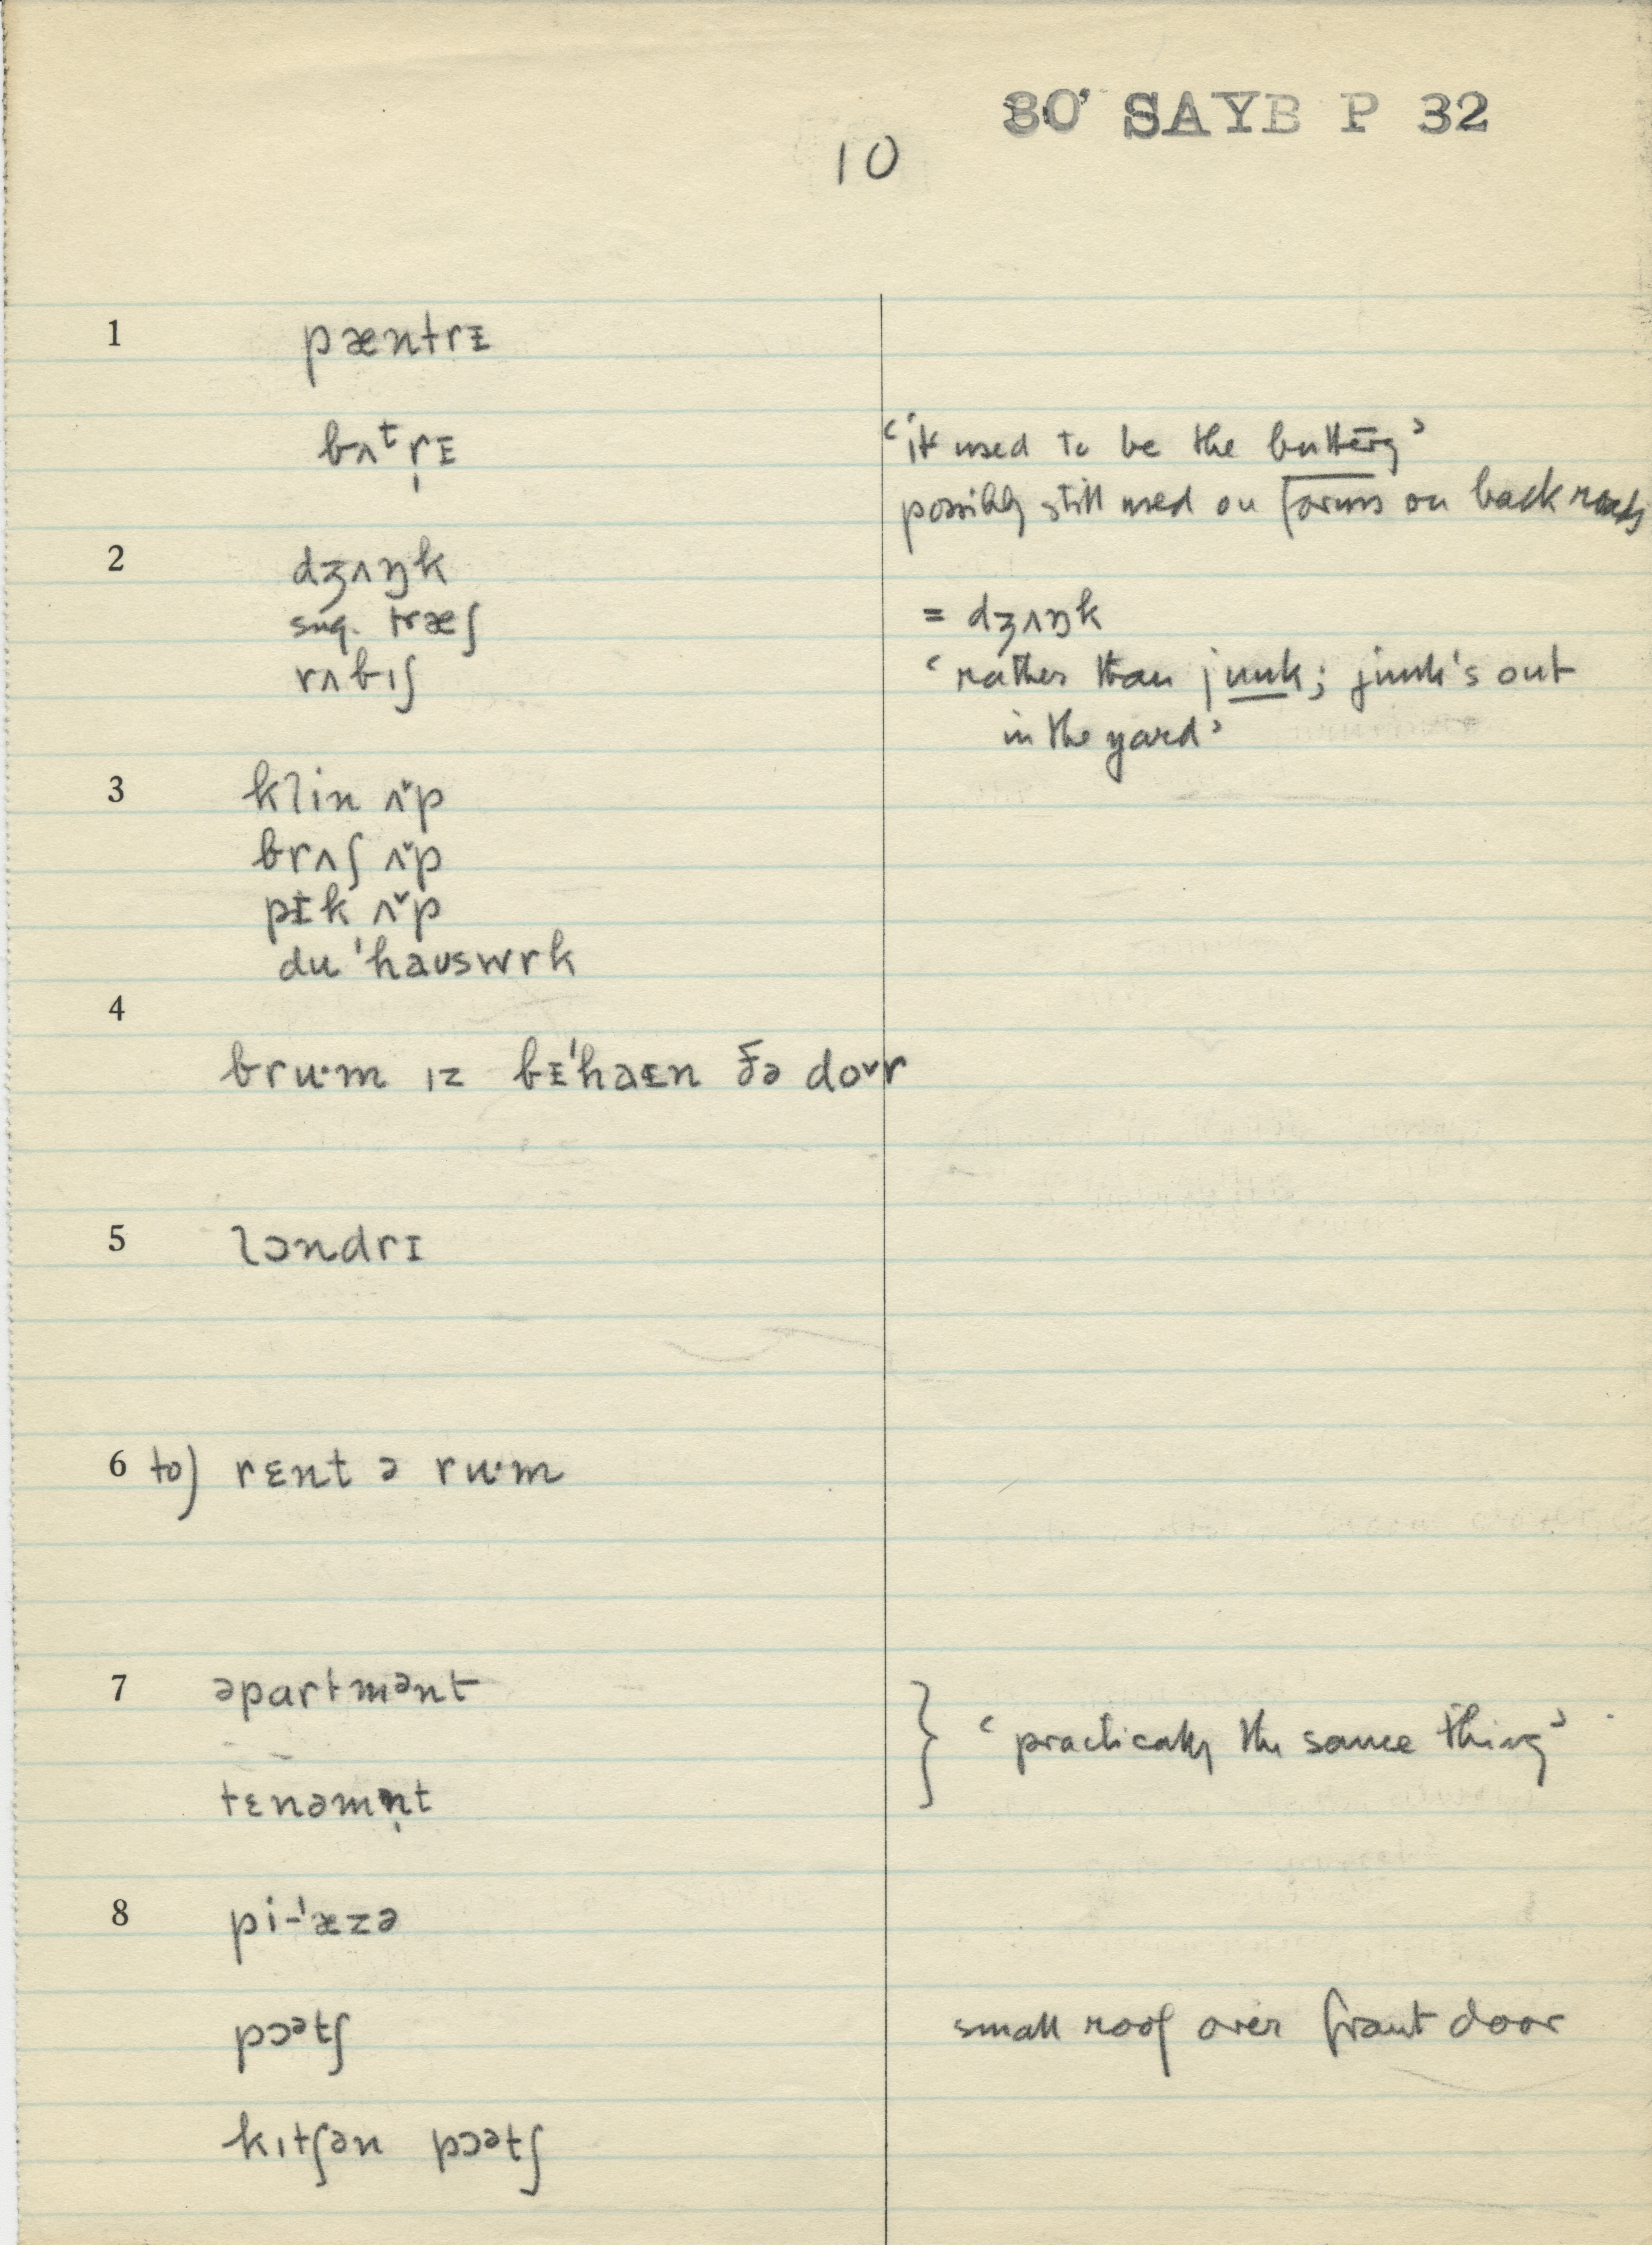 80' SAYB P 32
10
1 pæntrɪ
bʌᵗr̩ɪ ‘it used to be the buttery’
possibly still used on farms on back roads
2 dʒʌŋk
sug. træʃ = dʒʌŋk
rʌbıʃ ‘rather than junk; junk's out
in the yard’
3 klin ʌ̌p
brʌʃ ʌ̌p
pɪk ʌ̌p
du ˈhaʊswrk
4
bruˑm ız bɪˈhaɪn ðə doᵛr
5 lɔndrɪ
6 to) rɛnt ə ruˑm
7 əpartmᵊnt
‘practically the same thing’
tɛnəmn̩t
8 pi-ˈæzə
pɔᵊtʃ small roof over front door
kıtʃən pɔᵊtʃ